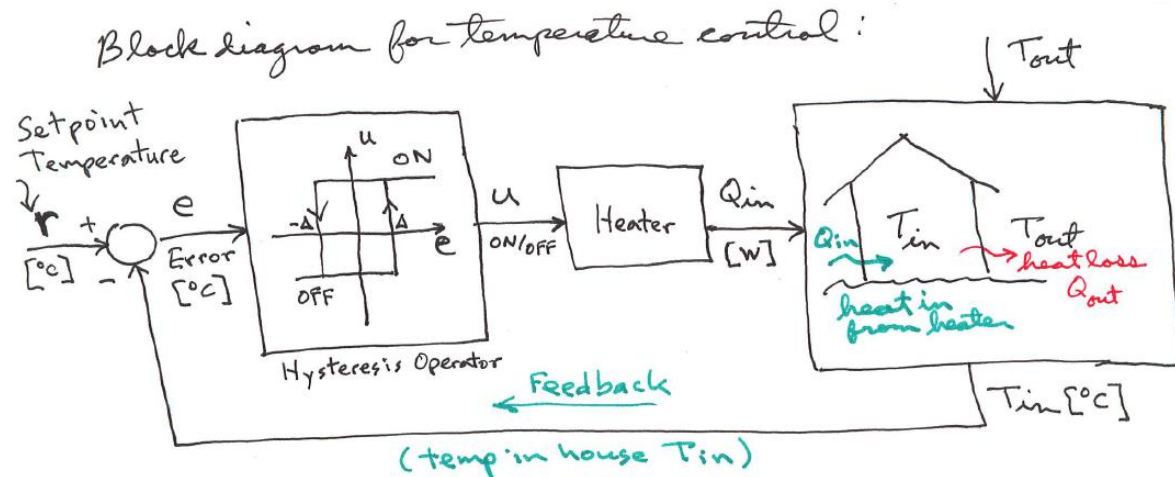 Block diagram for temperature control:
Tout
Setpoint
Temperature
r
+
-
[°C]
e
Error
[°C]
u
ON
-Δ
Δ
e
OFF
Hysteresis Operator
u
ON/OFF
Heater
Qin
[W]
Qin
Tin
Tout
heat loss
Qout
heat in
from heater
Feedback
Tin [°C]
(temp in house Tin)